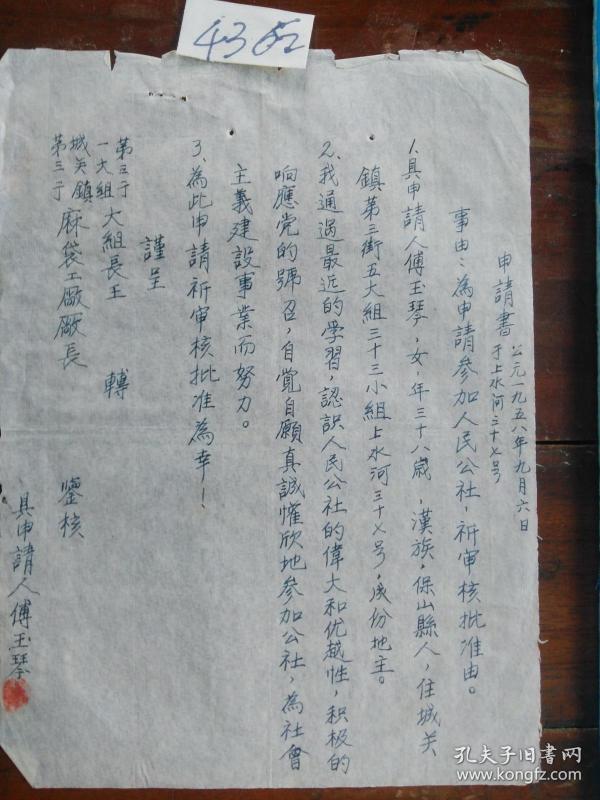 43匹
申請書 公元一九五八年九月六日
于上水河三十七号
事由：為申請參加人民公社，祈审核批准由。
1、具申請人傅玉琴，女，年三十八歲，漢族，保山縣人，住城关
鎮第三街五大組三十三小組上水河三十七号，成份地主。
2、我通過最近的学習，認識人民公社的偉大和优越性，积极的
响應党的號召，自覚自願真誠懽欣地參加公社，為社會
主義建設事業而努力。
3、為此申請祈审核批准為幸！
謹呈
第三于
一大組大組長王 轉
城关鎮
第三于 麻袋工廠廠長 鑒核
具申請人傅玉琴
孔夫子旧書网
www.kongfz.com